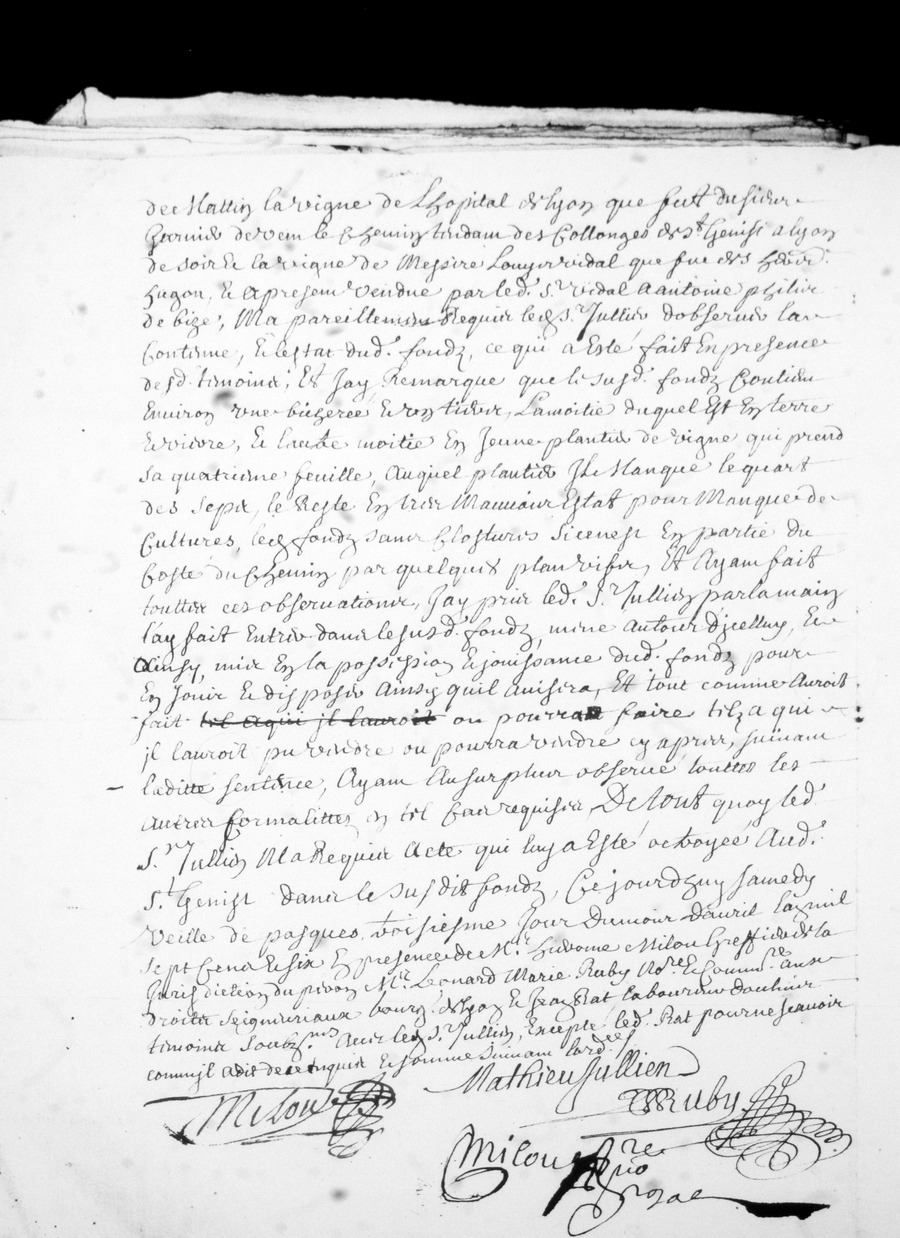 de Mattin la vigne de Lhopital de lyon que fut du sieur
Garnier de vem le Chemin tendam des Collonges de St Genist a lyon
de soir Et la vigne de Messire Louys vidal que fut des
hugon, Et apresent vendue par led. Sr. vidal a antoine
de bize, Ma pareillement Requis led. Sr. Jullien dobserver la
Contenue, Et lestat dud. fondz, ce qui a Esté fait En presence
desd. temoins, Et Jay Remarque que le susd. fondz Contien
Environ une bicheree Et un tier, Lamoitie duquel Est En terre
Et l'autre moitie En Jeune plantier de vigne qui prend
sa quatrieme feuille, Auquel plantier Il Manque le quart
des seps, le Reste En tres Mauvais Estat pour Manque de
Cultures, led. fondz sans Clostures si ce nest En partie du
Costé du Chemin par quelques plan vifs, Et Ayam fait
touttes ces observations, Jay pris led. Sr. Jullien par la main
lay fait Entrer dans le susd. fondz, mené Autour d'Icelluy, Et
Ainsy, mis En la possession Et jouissance dud. fondz pour
En Jouir Et disposer Ainsy quil Avisera, Et tout comme Auroit
fait ou pourra faire a qui
il lauroit pu vendre ou pourra vendre cy apres, suivam
laditte sentence, Ayam Au surplus observé touttes les
Autres formalittes En tel Cas requises, De tout quoy led.
Sr. Jullien Ma Requis Acte qui luy a Esté octroyeé Aud.
St. Genist dans le susdit fondz, Ce jourdhuy samedy
veille de pasques troisiesme Jour du mois d'avril lan mil
sept Cens Et six En presence de Mre. Milou Greffier de la
Jurisdiction du Mr. Leonard Marie Ruby No.re Et Comm.re aux
droits seigneuriaux bourg. de lyon Et Jean Rat laboureur
temoins Avec led. Sr. Jullien, Excepté led. Rat pour ne scavoir
comme il a dit de ce Enquis Et somme suivam lord.ee
Mathieu Jullien
Milou
Ruby
Milou